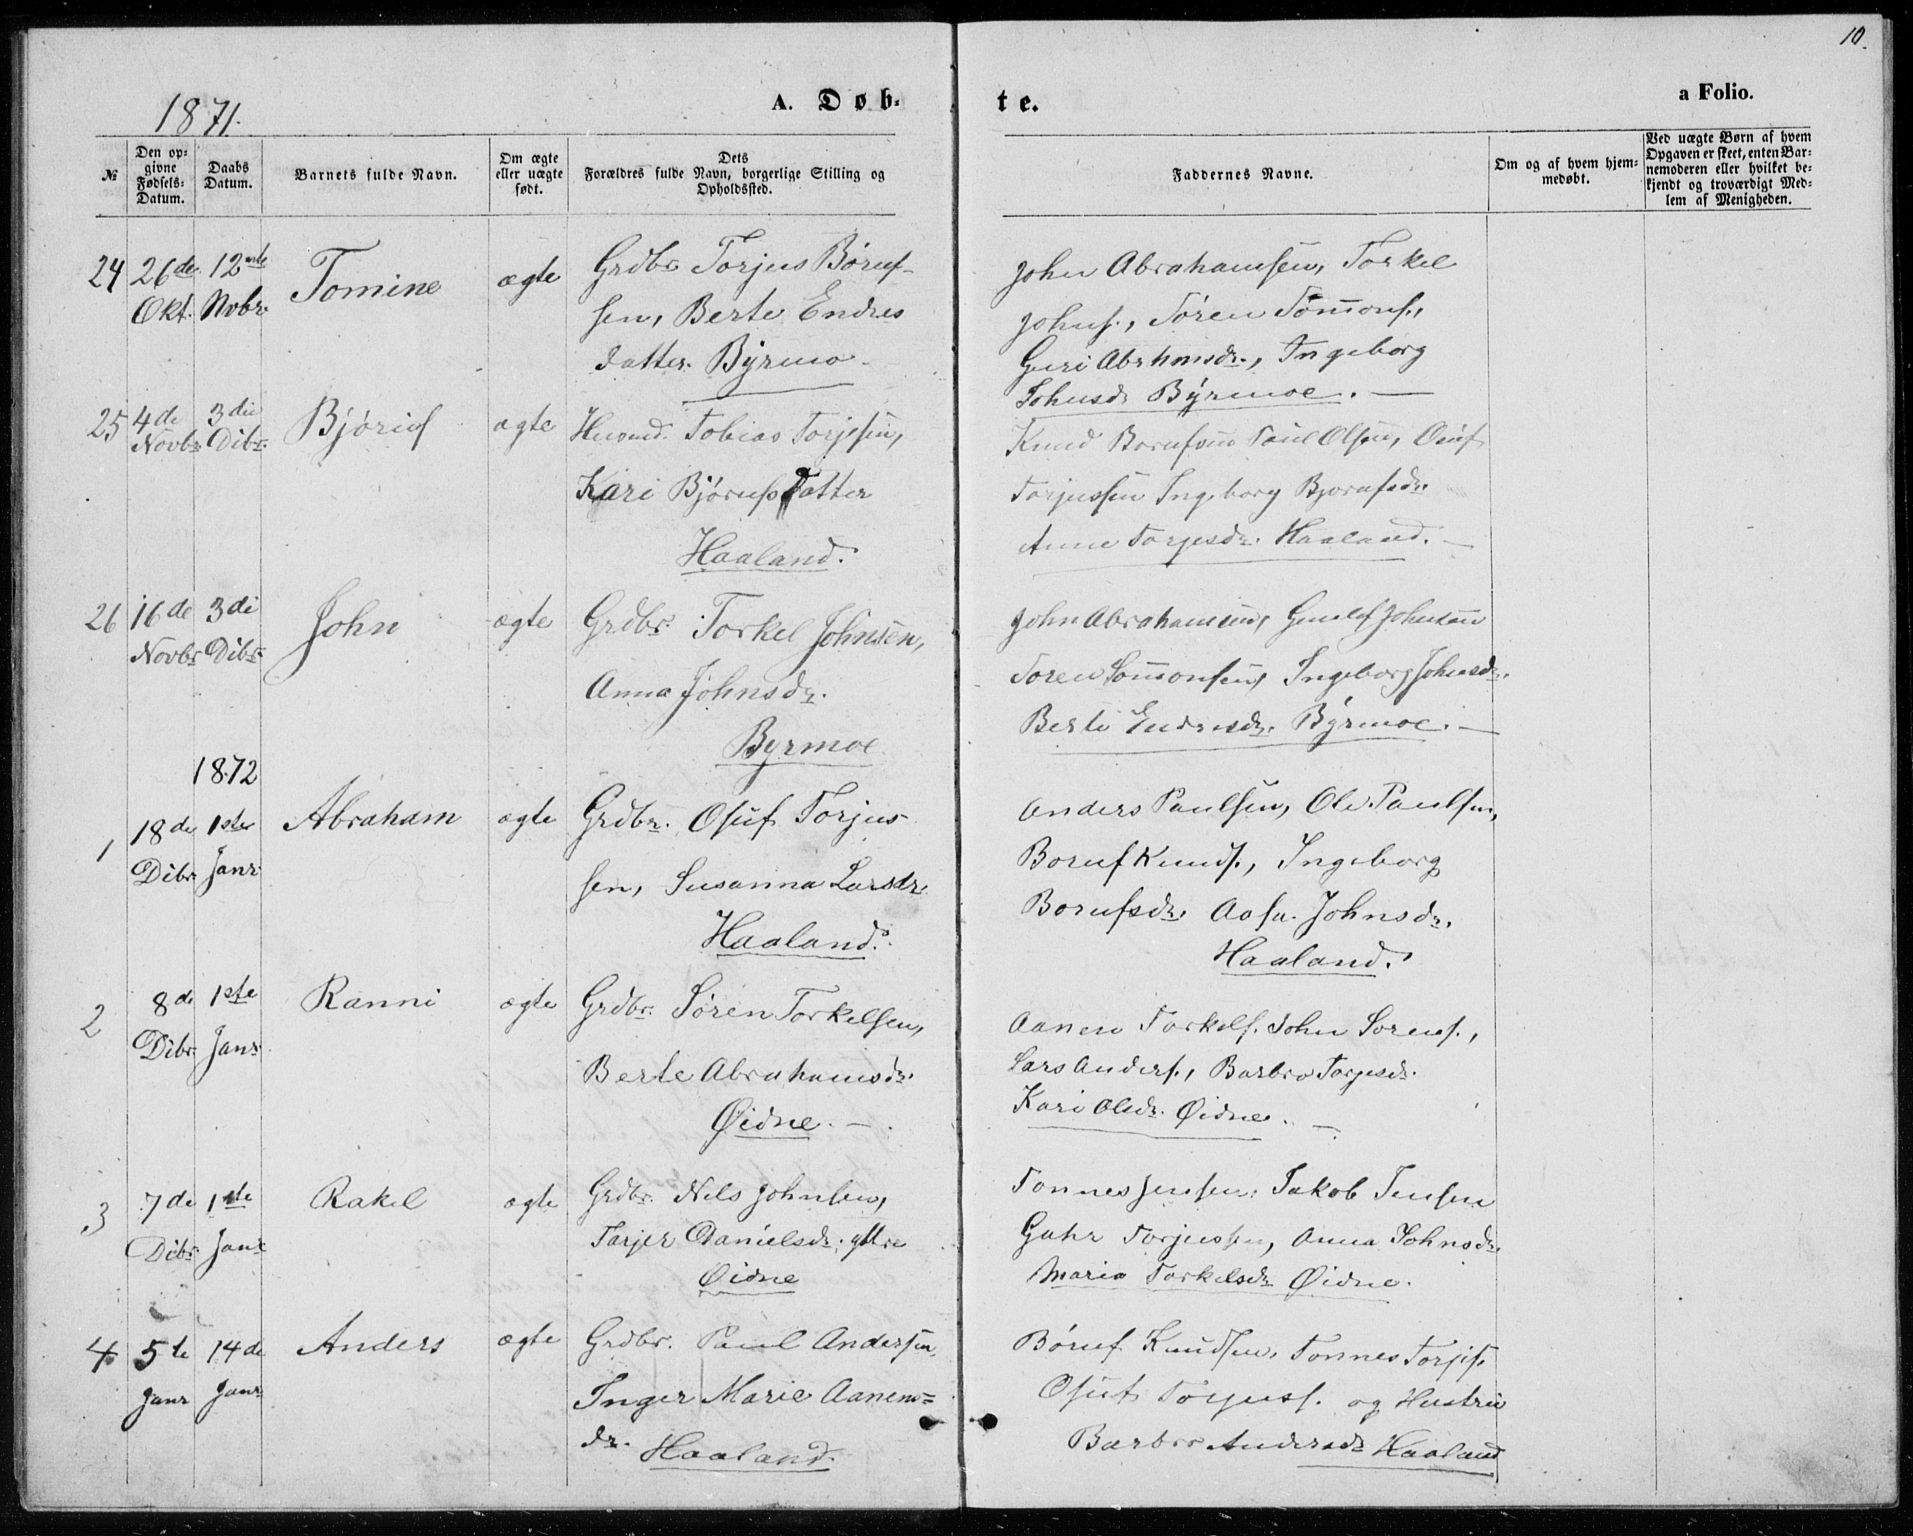 10.
1871.
A. Døb-
te.
a Folio.
№
Den op-
givne
Fødsels-
Datum.
Daabs
Datum.
Barnets fulde Navn.
Om ægte
eller uægte
født.
Dets
Forældres fulde Navn, borgerlige Stilling og
Opholdssted.
Faddernes Navne.
Om og af hvem hjem-
medøbt.
Ved uægte Børn af hvem
Opgaven er skeet, enten Bar-
nemoderen eller hvilket be-
kjendt og troværdigt Med-
lem af Menigheden.
24 26de 12te Tomine ægte Grdbr. Torjus Børuf-
Okt. Novbr. sen, Berte Endres
datter. Byrmo
John Abrahamsen, Torkel
Johns., Søren Tømons.,
Guri Abrhmsdr., Ingeborg
Johnsd. Byrmoe.
25 4de 3die Bjøruf ægte Husmd. Tobias Torjesen,
Novbr. Dibr. Kari Bjørufsdatter
Haaland.
Knud Børufsen Paul Olsen, Osuf
Torjussen Ingeborg Bjorufsdr.
Anne Torjesdr. Haaland.
26 16de 3di John ægte Grdbr. Torkel Johnsen,
Novbr. Dibr. Anna Johnsdr.
Byrmoe
John Abrahamsen, Gunlef Johnsen
Soren Tomonsen, Ingeborg Johnsdr.
Berte Endresdr. Byrmoe.
1872
1 18de 1ste Abraham ægte Grdbr. Osuf Torjus-
Dibr. Janr. sen, Susanna Larsdr.
Haaland.
Anders Paulsen, Ole Paulsen,
Boruf Knuds., Ingeborg
Borufsdr. Aasa Johnsdr.
Haaland.
2 8de 1ste Ranni ægte Grdbr. Søren Torkelsen,
Dibr. Janr. Berte Abrahamsdr.
Øidne.
Aanen Torkels. John Sorens.,
Lars Anders., Barbro Torjesdr.
Kari Olsdr. Øidne.
3 7de 1ste Rakel ægte Grdbr. Nils Johnsen,
Dibr. Janr. Tarjer Danielsdr.
Øidne
Tonnes Jensen, Jakob Jensen
Torjussen, Anna Johnsdr.
Maria Torkelsdr. Øidne.
4 5te 14de Anders ægte Grdbr. Paul Andersen,
Janr Janr. Inger Marie Aanens-
dr. Haaland.
Børuf Knudsen, Tonnes Torjes.
Osuf Torjuss. og Hustru
Barbro Andersdr. Haaland